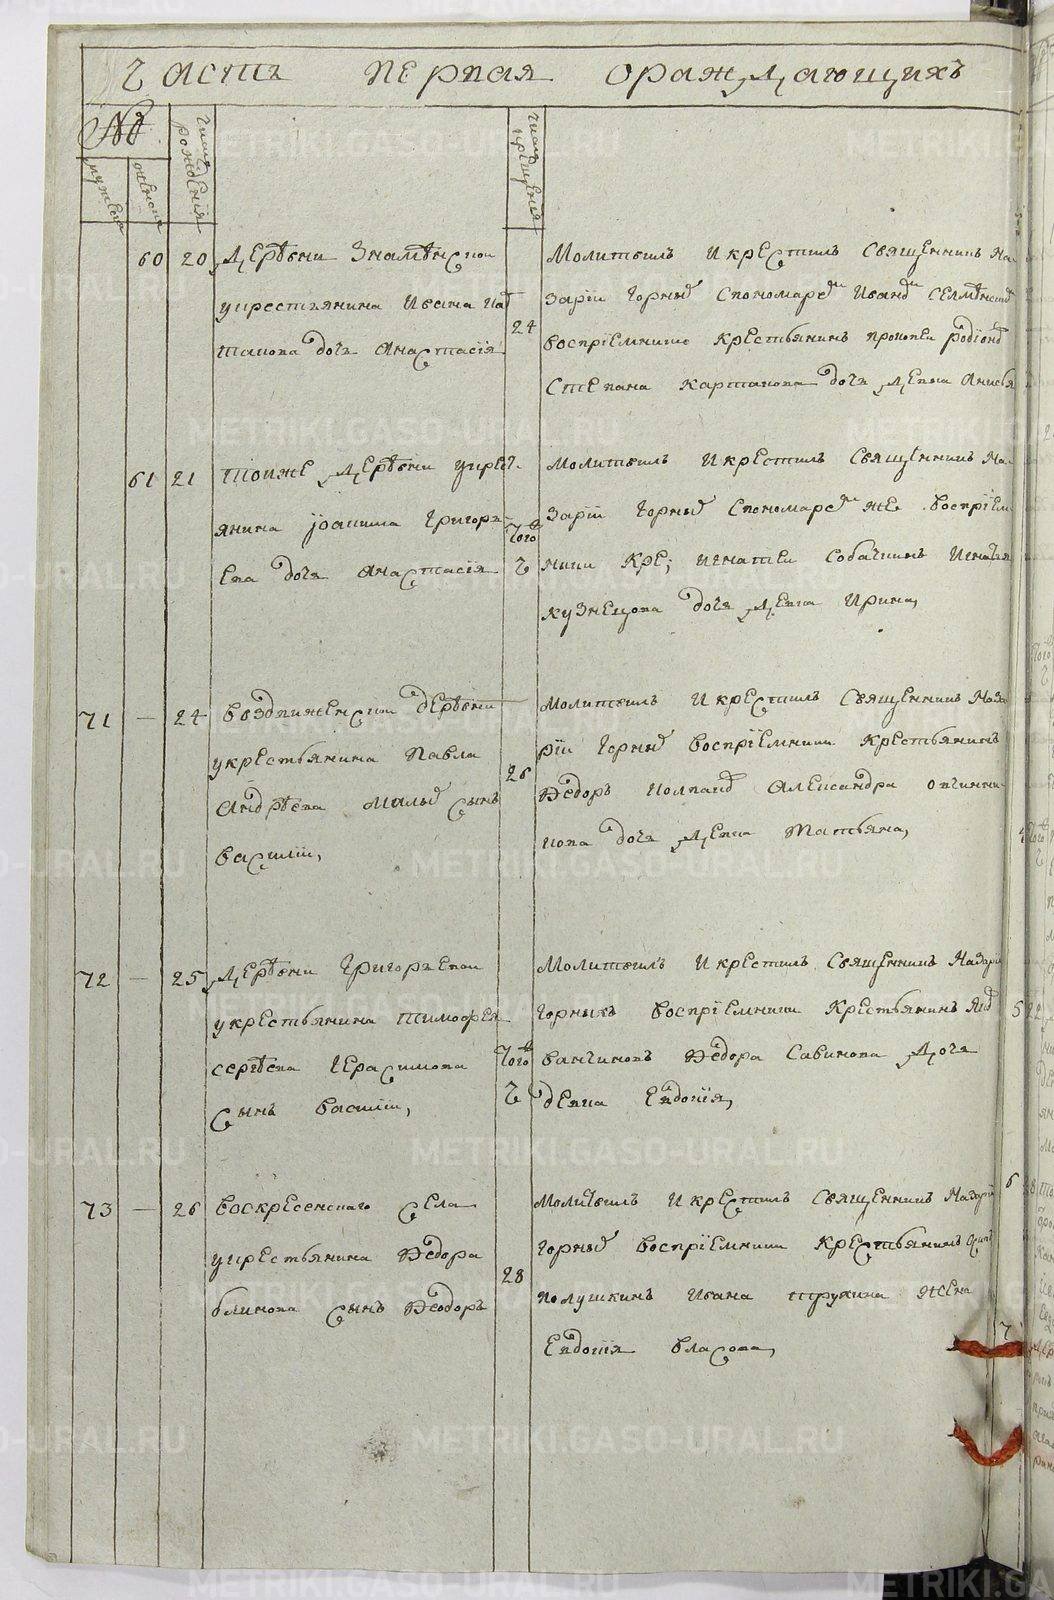 Часть первая ораждающихъ
№
мужеска
женска
число рождения
число крещения
60 20 Деревни Знаменской
укрестьянина Ивана
дочь Анастасія
24
Молитвилъ и крестилъ Священникъ На-
зарїй Горныхъ Спономаремъ Иваномъ
воспріемники крестьянинъ прокопей
Степана карташова дочь девка Анисья
61 21 тойже деревни укрест-
янина Іоакима Григорь-
ева дочь Анастасія
Того Ч
Молитвилъ и крестилъ Священникъ На-
зарїй Горныхъ Спономаремъ же воспріем-
ники Кре; игнатей Собачкинъ Игнатья
кузнецова дочь девка Ирина,
71 — 24 воздвиженской деревни
укрестьянина Павла
Андреева Малыхъ сынъ
василій,
26
Молитвилъ и крестилъ Священникъ Наза-
рїй Горныхъ воспріемники Крестьянинъ
Федоръ Александра овчинни-
кова дочь девка Татьяна,
72 — 25 деревни Григорьевой
укрестьянина тимофея
сергеева Герасимова
сынъ василій,
Того Ч
Молитвилъ и крестилъ Священникъ Назарїй
Горныхъ воспріемники Крестьянинъ
Федора Савинова дочь
девка Евдокія,
73 — 26 воскресенскаго села
укрестьянина Федора
блинова сынъ Феодоръ
28
Молитвилъ и крестилъ Священникъ Назарїй
Горныхъ воспріемники Крестьянинъ
полушкинъ Ивана трухина жена
Евдокія власова,
METRIKI.GASO-URAL.RU